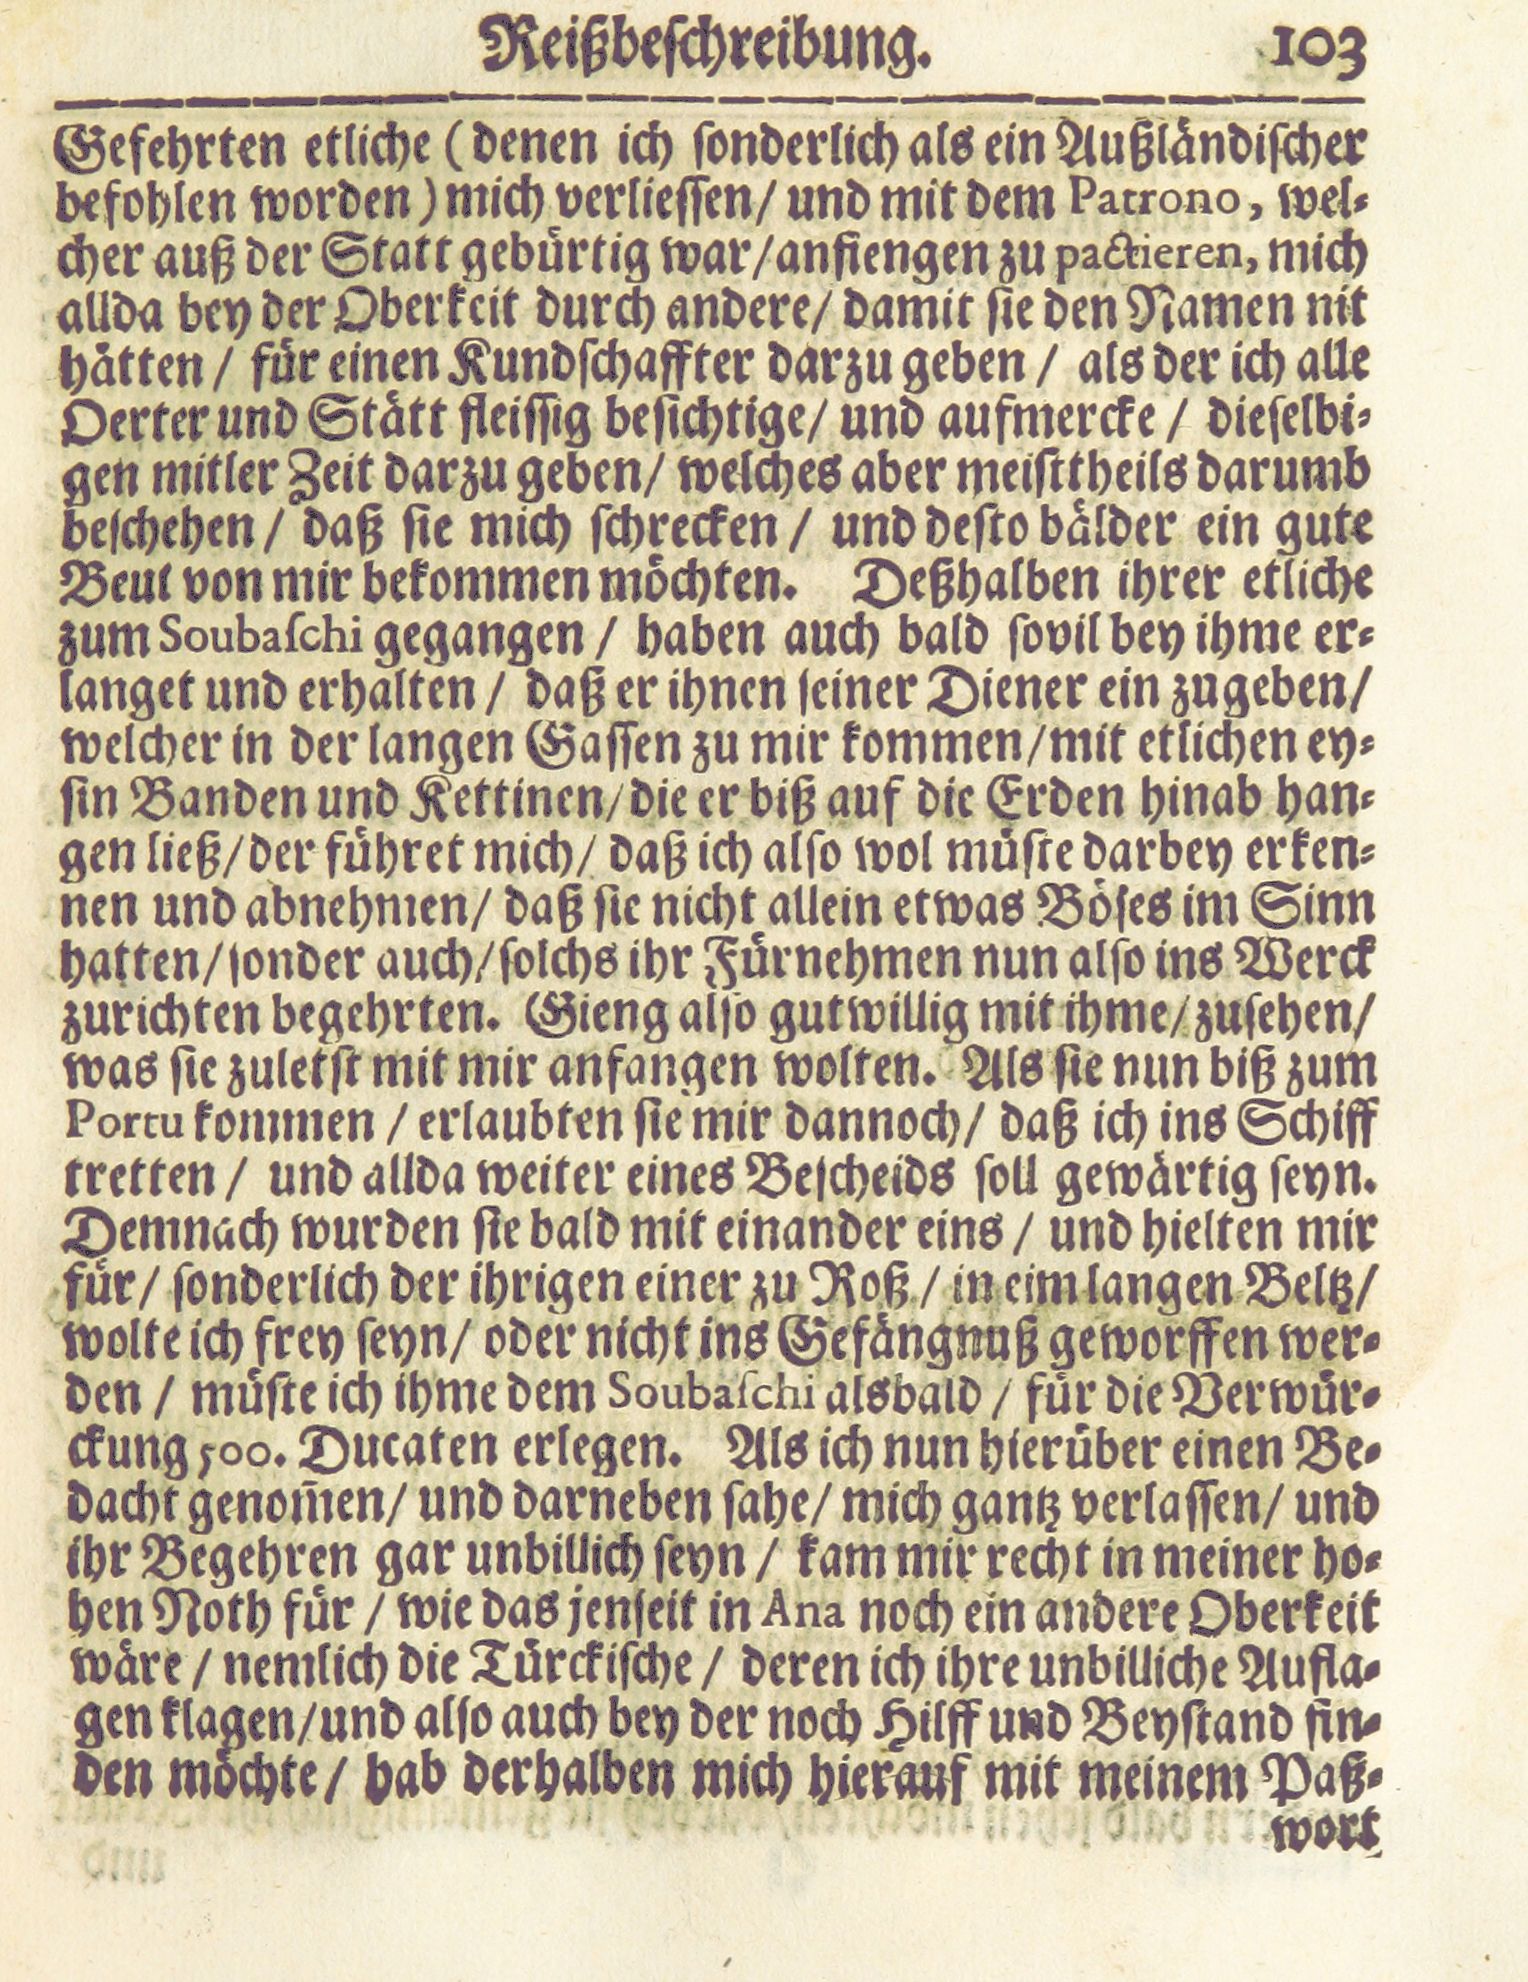 Reißbeſchreibung. 103
Gefehrten etliche (denen ich ſonderlich als ein Außländiſcher
befohlen worden) mich verlieſſen/ und mit dem Patrono, wel-
cher auß der Statt gebürtig war/ anfiengen zu pactieren, mich
allda bey der Oberkeit durch andere/ damit ſie den Namen nit
hätten / für einen Kundſchaffter darzu geben / als der ich alle
Oerter und Stätt fleiſſig beſichtige/ und aufmercke / dieſelbi-
gen mitler Zeit darzu geben/ welches aber meiſttheils darumb
beſchehen / daß ſie mich ſchrecken / und deſto bälder ein gute
Beut von mir bekommen möchten. Deßhalben ihrer etliche
zum Soubaſchi gegangen / haben auch bald ſovil bey ihme er-
langet und erhalten / daß er ihnen ſeiner Diener ein zugeben/
welcher in der langen Gaſſen zu mir kommen/ mit etlichen ey-
ſin Banden und Kettinen/ die er biß auf die Erden hinab han-
gen ließ/ der führet mich/ daß ich alſo wol müſte darbey erken-
nen und abnehmen/ daß ſie nicht allein etwas Böſes im Sinn
hatten/ ſonder auch/ ſolchs ihr Fürnehmen nun alſo ins Werck
zurichten begehrten. Gieng alſo gutwillig mit ihme/ zuſehen/
was ſie zuletſt mit mir anfangen wolten. Als ſie nun biß zum
Portu kommen / erlaubten ſie mir dannoch/ daß ich ins Schiff
tretten / und allda weiter eines Beſcheids ſoll gewärtig ſeyn.
Demnach wurden ſie bald mit einander eins / und hielten mir
für/ ſonderlich der ihrigen einer zu Roß / in eim langen Beltz/
wolte ich frey ſeyn/ oder nicht ins Gefängnuß geworffen wer-
den / müſte ich ihme dem Soubaſchi alsbald / für die Verwür-
ckung 500. Ducaten erlegen. Als ich nun hierüber einen Be-
dacht genom̃en/ und darneben ſahe/ mich gantz verlaſſen/ und
ihr Begehren gar unbillich ſeyn / kam mir recht in meiner ho-
hen Noth für / wie das jenſeit in Ana noch ein andere Oberkeit
wäre / nemlich die Türckiſche / deren ich ihre unbilliche Aufla-
gen klagen/ und alſo auch bey der noch Hilff und Beyſtand fin-
den möchte / hab derhalben mich hierauf mit meinem Paß-
wort